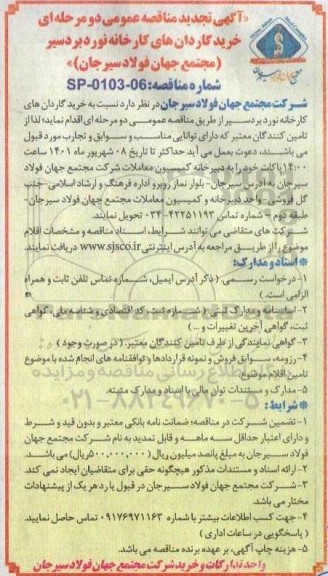 «آگهی تجدید مناقصه عمومی دو مرحله ای
خرید گاردان های کارخانه نورد بردسیر
(مجتمع جهان فولاد سیرجان)»
شماره مناقصه: SP-0103-06
شرکت مجتمع جهان فولاد سیرجان در نظر دارد نسبت به خرید گاردان های
کارخانه نورد بردسیر از طریق مناقصه عمومی دو مرحله ای اقدام نماید؛ لذا از
تامین کنندگان معتبر که دارای توانایی مناسب و سوابق و تجارب مورد قبول
می باشند، دعوت بعمل می آید حداکثر تا تاریخ ۰۸ شهریور ماه ۱۴۰۱ ساعت
۱۴:۰۰ پاکات خود را به دبیرخانه کمیسیون معاملات شرکت مجتمع جهان فولاد
سیرجان به آدرس سیرجان-بلوار نماز روبرو اداره فرهنگ و ارشاد اسلامی-جنب
گل فروشی-واحد دبیرخانه و کمیسیون معاملات مجتمع جهان فولاد سیرجان-
طبقه دوم - شماره تماس ۴۲۲۵۱۱۹۲-۰۳۴ تحویل نمایند.
شرکت های متقاضی می توانند شرایط، اسناد مناقصه و مشخصات اقلام
موضوع را از طریق مراجعه به آدرس اینترنتی www.sjsco.ir دریافت نمایند.
*اسناد و مدارک:
۱-درخواست رسمی (ذکر آدرس ایمیل، شماره تماس تلفن ثابت و همراه
الزامی است.)
۲-اساسنامه و مدارک ثبتی (شماره ثبت، کد اقتصادی و شناسه ملی، گواهی
ثبت، گواهی آخرین تغییرات و ...)
۳-گواهی نمایندگی از طرف تامین کنندگان معتبر. (در صورت وجود)
۴-رزومه، سوابق فروش و نمونه قراردادها و توافقنامه های انجام شده با موضوع
تامین اقلام موضوع
۵-مدارک و مستندات توان مالی با اسناد و مدارک مثبته.
۰۲۱-۸۸۳۴۹۶۷۰-۵
*شرایط:
۱-تضمین شرکت در مناقصه؛ ضمانت نامه بانکی معتبر و بدون قید و شرط
و دارای اعتبار حداقل سه ماهه و قابل تمدید به نام شرکت مجتمع جهان
فولاد سیرجان به مبلغ پانصد میلیون ریال (۵۰۰,۰۰۰,۰۰۰ ریال) می باشد.
۲-ارائه اسناد و مستندات مذکور هیچگونه حقی برای متقاضیان ایجاد نمی کند.
۳-شرکت مجتمع جهان فولاد سیرجان در قبول یا رد هر یک از پیشنهادات
مختار می باشد.
۴-جهت کسب اطلاعات بیشتر با شماره ۰۹۱۷۶۹۷۱۱۶۳ تماس حاصل نمایید.
(پاسخگویی در ساعات اداری)
۵-هزینه چاپ آگهی، بر عهده برنده مناقصه می باشد.
واحد تدارکات و خرید شرکت مجتمع جهان فولاد سیرجان